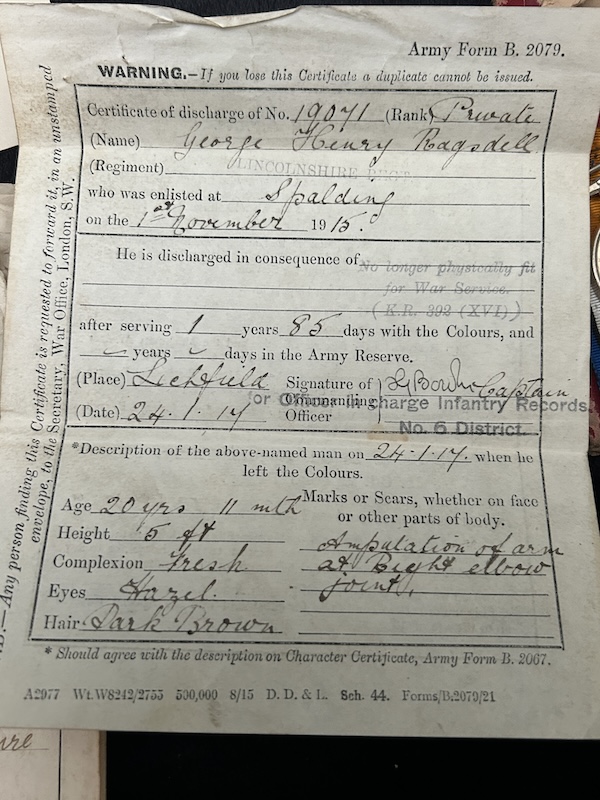 Army Form B. 2079.
WARNING.—If you lose this Certificate a duplicate cannot be issued.
Certificate of discharge of No. 19071 (Rank) Private
(Name) George Henry Ragsdell
(Regiment) LINCOLNSHIRE REGT
who was enlisted at Spalding
on the 1st November 1915.
He is discharged in consequence of No longer physically fit
for War Service.
(K.R. 392 (XVI).)
after serving 1 years 85 days with the Colours, and
years days in the Army Reserve.
(Place) Lichfield Signature of Captain
Commanding
or Officer i/c Discharge Infantry Records.
(Date) 24.1.17 Officer
No. 6 District.
*Description of the above-named man on 24.1.17. when he
left the Colours.
Age 20 yrs 11 mth Marks or Scars, whether on face
or other parts of body.
Height 5 ft Ampulation of arm
Complexion Fresh at Right elbow
Eyes Hazel. joint.
Hair Dark Brown
* Should agree with the description on Character Certificate, Army Form B. 2067.
A2077 Wt.W8242/2755 500,000 8/15 D. D. & L. Sch. 44. Forms/B.2079/21
.B.—Any person finding this Certificate is requested to forward it, in an unstamped
envelope, to the Secretary, War Office, London, S.W.